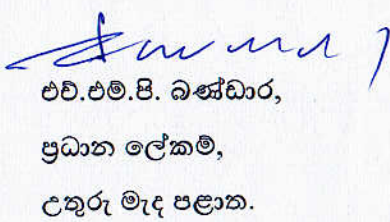 එච්.එම්.පී. බණ්ඩාර,
ප්‍රධාන ලේකම්,
උතුරු මැද පළාත.